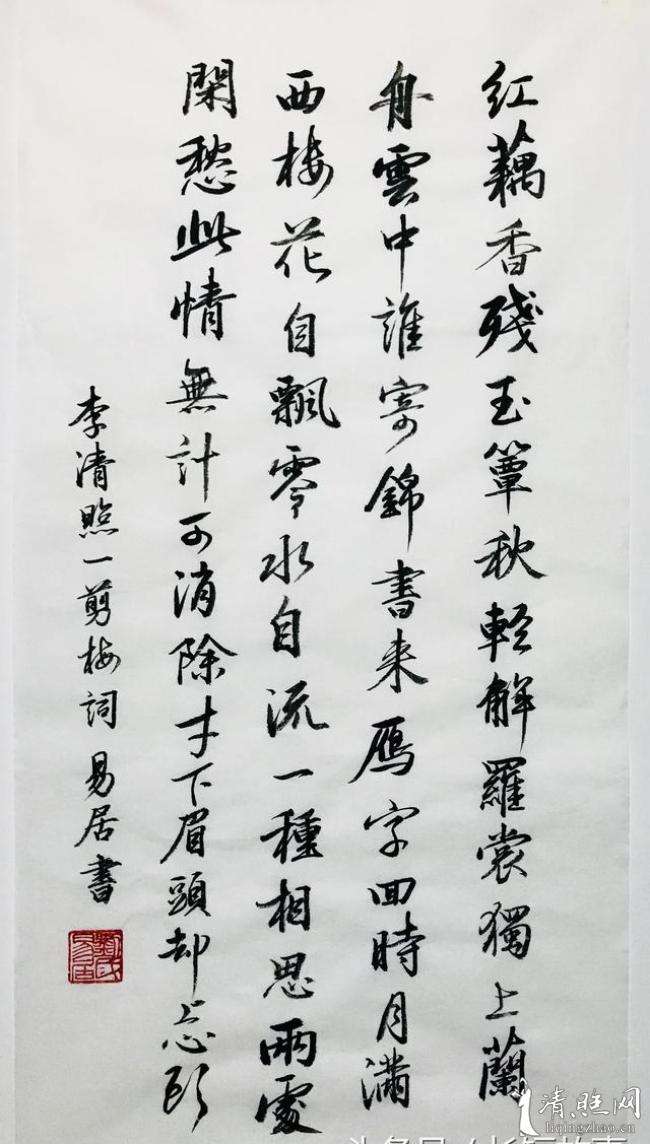 红藕香殘玉簟秋輕解羅裳獨上蘭
舟雲中誰寄錦書来鴈字回時月滿
西樓花自飄零水自流一種相思兩處
閑愁此情無計可消除才下眉頭却上心頭
李清照一剪梅詞 易居書
清照网
liqingzhao.cn